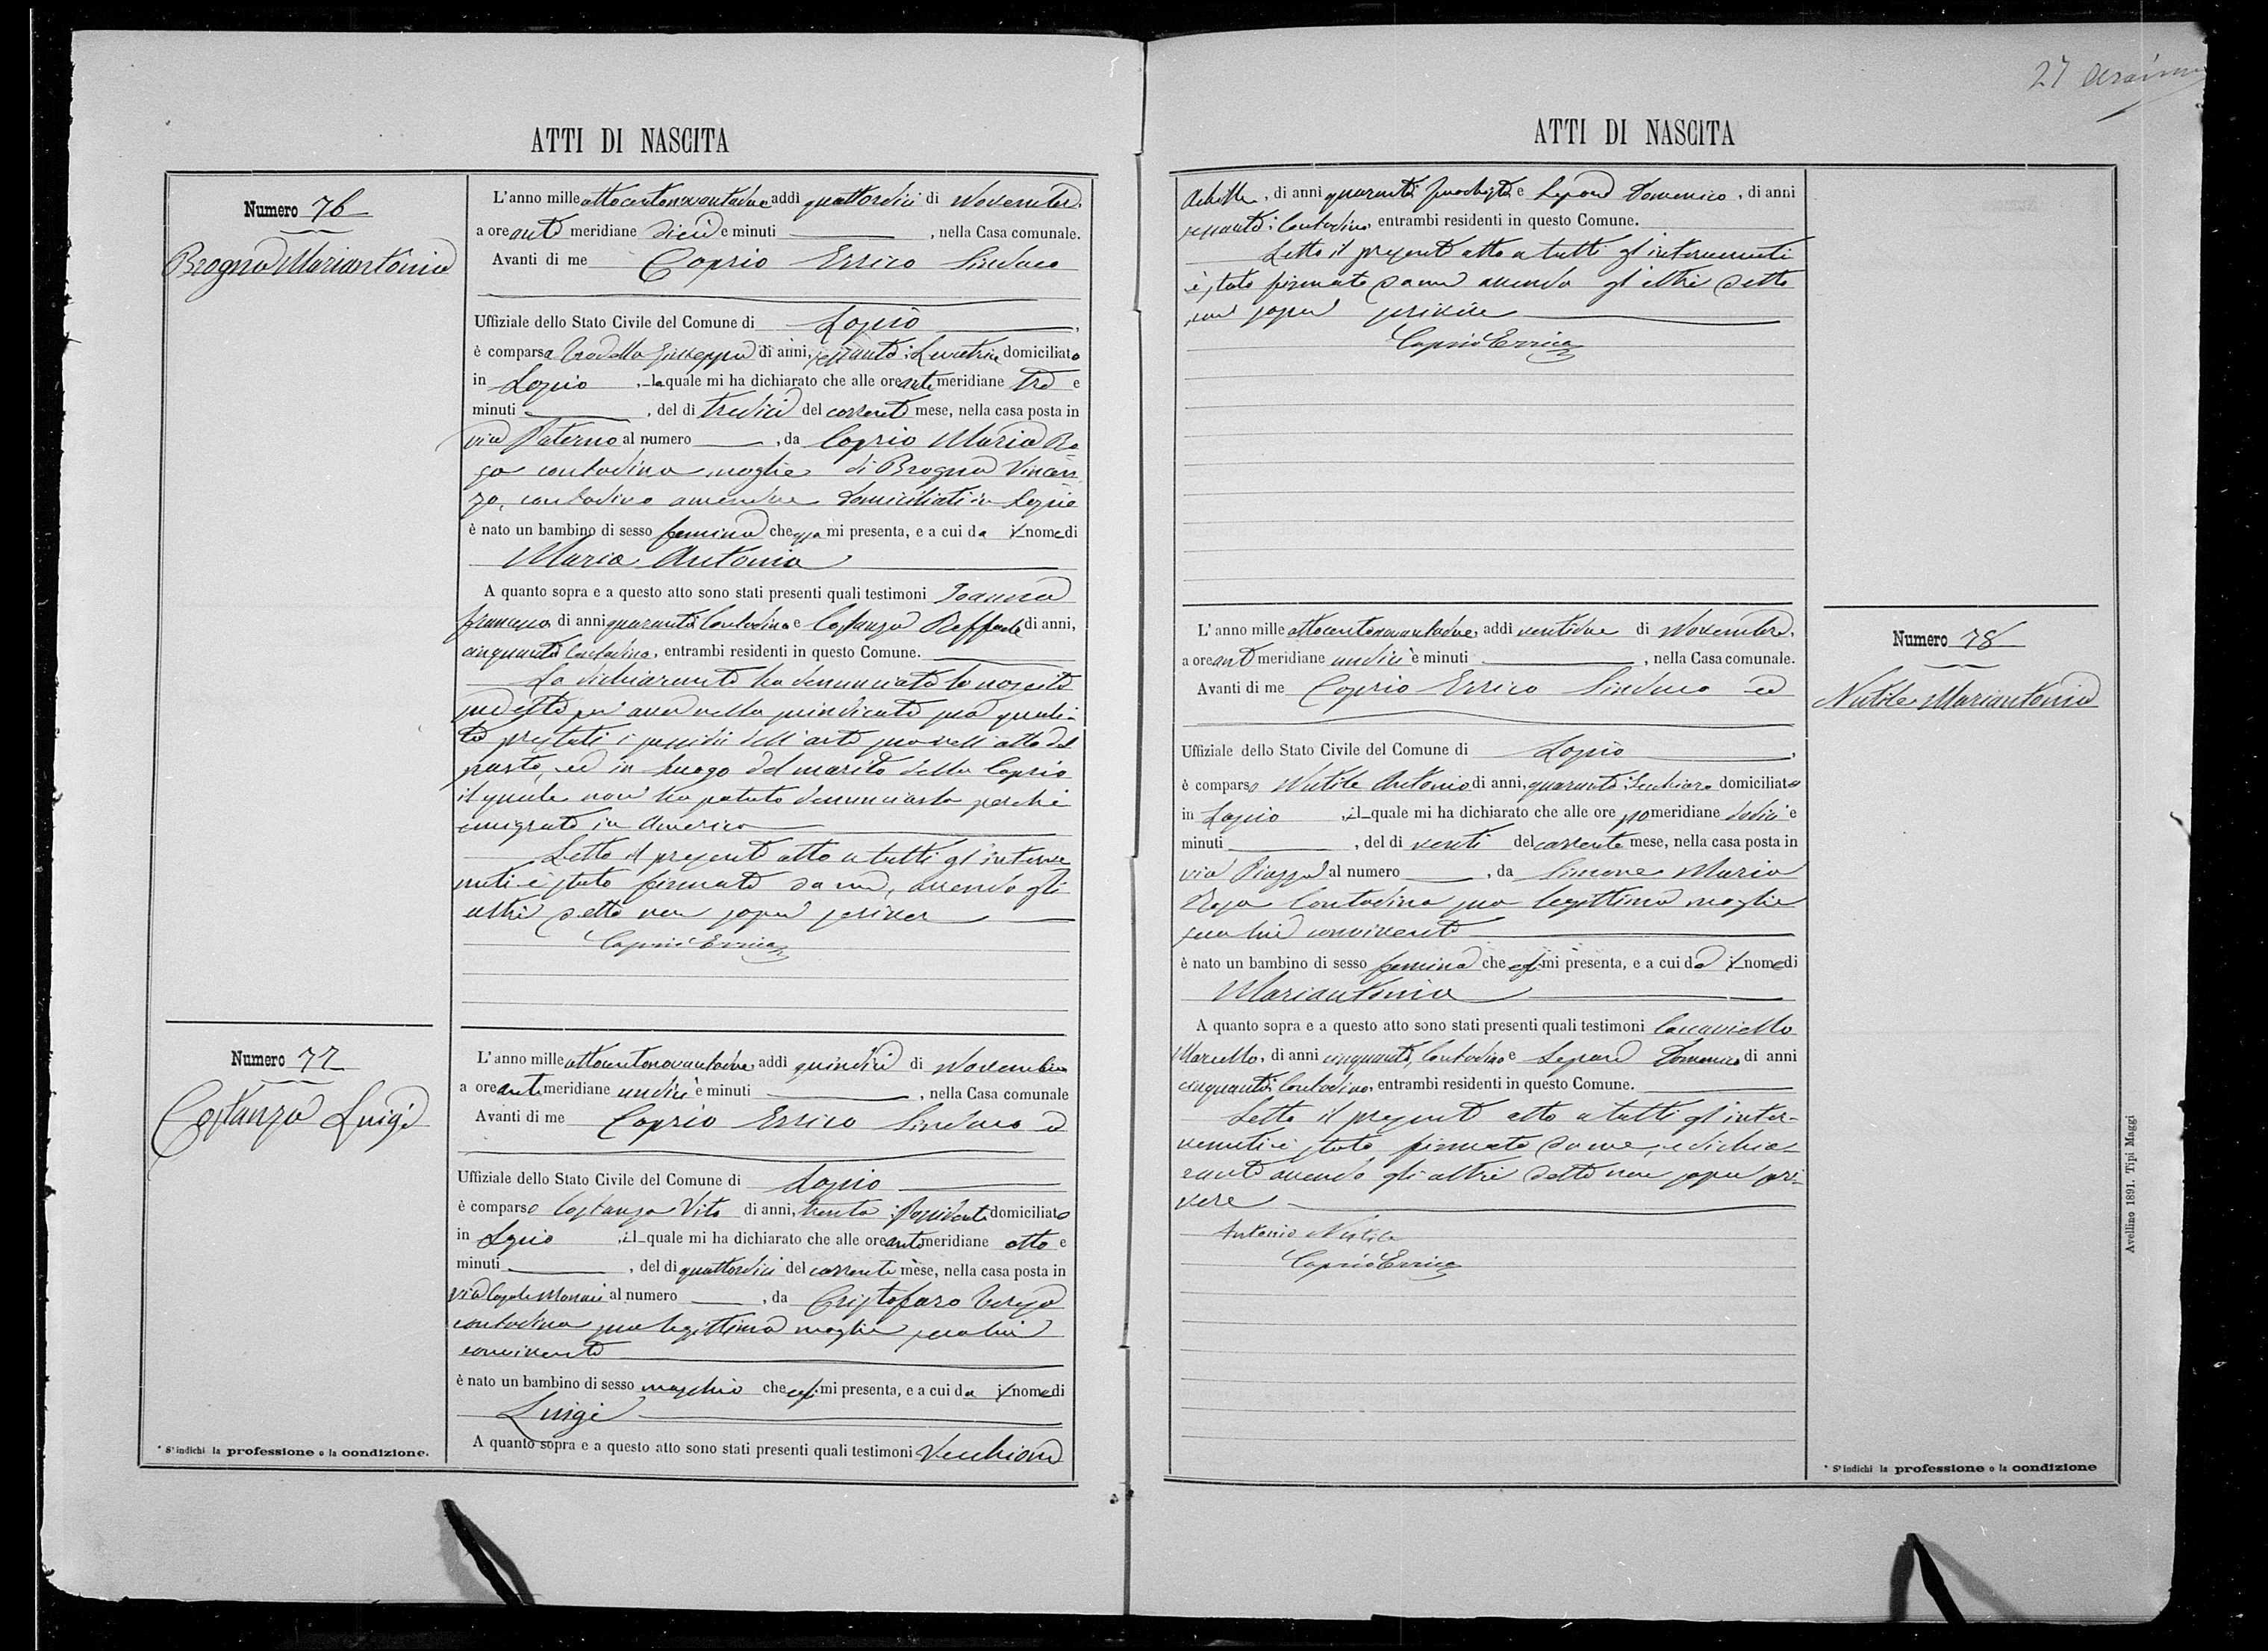 27
ATTI DI NASCITA
Numero 76
Brogna Mariantonia
L'anno mille ottocentonovantadue addì quattordici di Novembre,
a ore anti meridiane dieci e minuti , nella Casa comunale.
Avanti di me Caprio Errico Sindaco
Uffiziale dello Stato Civile del Comune di Lapio ,
è comparsa Giuseppa di anni, sessanta; Levatrice domiciliata
in Lapio , la quale mi ha dichiarato che alle ore anti meridiane tre e
minuti , del dì tredici del corrente mese, nella casa posta in
via Paterno al numero , da Caprio Maria Ro
sa contadina moglie di Brogna Vincen
zo, contadino amendue domiciliati in Lapio
è nato un bambino di sesso femina che essa mi presenta, e a cui da i nome di
Maria Antonia
A quanto sopra e a questo atto sono stati presenti quali testimoni Ioanna
Francesco di anni quaranta Contadino e Costanza Raffaele di anni,
cinquanta Contadino, entrambi residenti in questo Comune.
La dichiarante ha denunciato la nascita
predetta per aver nella preindicata sua quali-
tà prestati i sussidii dell'arte sua nell'atto del
parto, ed in luogo del marito della Caprio
il quale non ha potuto denunciarla perchè
emigrato in America
Letto il presente atto a tutti gl'interve
nuti è stato firmato da me, avendo gli
altri detto non saper scriver
Caprio Errico
Numero 77
Costanza Luigi
L'anno mille ottocentonovantadue addì quindici di Novembre
a ore anti meridiane undici e minuti , nella Casa comunale
Avanti di me Caprio Errico Sindaco ed
Uffiziale dello Stato Civile del Comune di Lapio
è comparso Costanza Vito di anni, trenta; Possidente domiciliato
in Lapio , il quale mi ha dichiarato che alle ore anti meridiane otto e
minuti , del dì quattordici del corrente mese, nella casa posta in
via al numero , da Cristofaro Teresa
contadina sua legittima moglie seco lui
convivente
è nato un bambino di sesso maschio che esso mi presenta, e a cui da i nome di
Luigi
A quanto sopra e a questo atto sono stati presenti quali testimoni Vecchione
* S'indichi la professione o la condizione.
ATTI DI NASCITA
Achille, di anni quaranta e Lepore Domenico, di anni
sessanta; Contadino, entrambi residenti in questo Comune.
Letto il presente atto a tutti gl'intervenuti
è stato firmato da me avendo gl'altri detto
non saper scrivere
Caprio Errico
Numero 78
Nutile Mariantonia
L'anno mille ottocentonovantadue, addì ventidue di Novembre,
a ore ant meridiane undici e minuti , nella Casa comunale.
Avanti di me Caprio Errico Sindaco ed
Uffiziale dello Stato Civile del Comune di Lapio ,
è comparso Nutile Antonio di anni, quaranta; domiciliato
in Lapio , il quale mi ha dichiarato che alle ore po meridiane dodici e
minuti , del dì venti del corrente mese, nella casa posta in
via Piazza al numero , da Simone Maria
Rosa Contadina sua legittima moglie
seco lui convivente
è nato un bambino di sesso femina che esso mi presenta, e a cui da i nome di
Mariantonia
A quanto sopra e a questo atto sono stati presenti quali testimoni Caccaviello
Marcello, di anni cinquanta, Contadino e Lepore Domenico di anni
cinquanta; Contadino, entrambi residenti in questo Comune.
Letto il presente atto a tutti gl'inter-
venuti è stato firmato da me, e dichia-
rante avendo gli altri detto non saper scri-
vere
Antonio Nutile
Caprio Errico
* S'indichi la professione o la condizione
Avellino 1891. Tipi Maggi